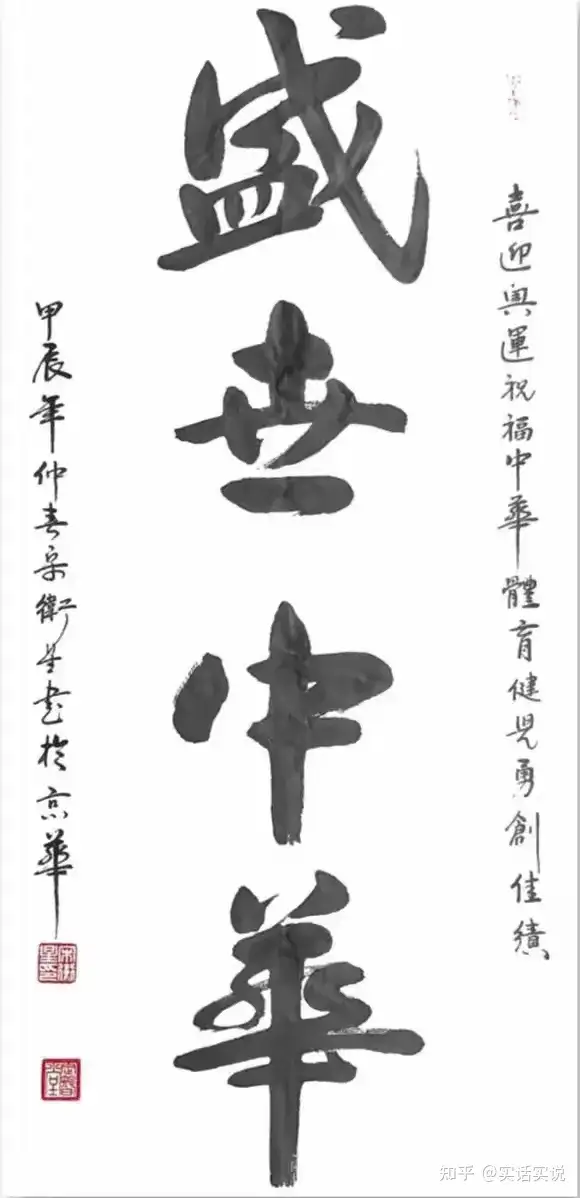 喜迎奥運祝福中華體育健兒勇創佳績
盛世中華
甲辰年仲春宋衛星書於京華
知乎 @实话实说